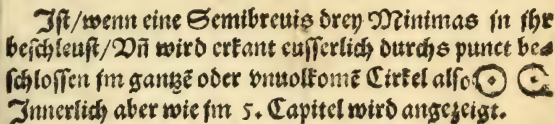 Iſt/wenn eine Semibreuis drey Minimas in jhr
beſchleuſt/Vñ wird erkant euſſerlich durchs punct be⸗
ſchloſſen im gantzẽ oder vnuolkomẽ Cirkel alſo
Innerlich aber wie im 5. Capitel wird angezeigt.